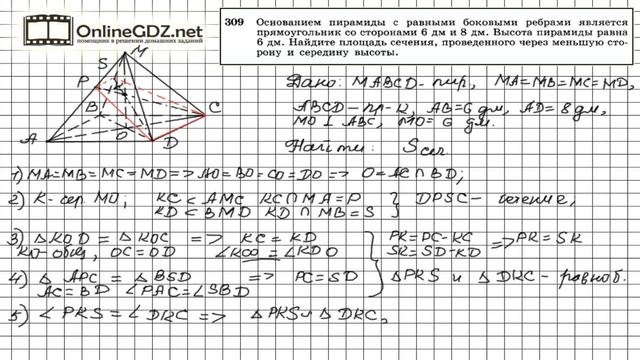 OnlineGDZ.net
помощник в решении домашних заданий
309 Основанием пирамиды с равными боковыми ребрами является
прямоугольник со сторонами 6 дм и 8 дм. Высота пирамиды равна
6 дм. Найдите площадь сечения, проведенного через меньшую сто-
рону и середину высоты.
M
S
P
K
B
C
A
O
D
Дано: MABCD - пир, MA=MB=MC=MD,
ABCD - пр-к, AB=6 дм, AD=8 дм,
MO⊥ABC, MO=6 дм.
Найти: Sсеч
1) MA=MB=MC=MD => AO=BO=CO=DO => O=AC∩BD;
2) K - сер. MO, KC ⊂ AMC KC∩MA=P } DPSC - сечение,
KD ⊂ BMD KD∩MB=S
3) △KOD = △KOC => KC=KD } PK=PC-KC => PK=SK
KO-общ, OC=OD ∠KCO=∠KDO SK=SD-KD
4) △APC = △BSD => PC=SD △PKS и △DKC - равноб.
AC=BD ∠PAC=∠SBD
5) ∠PKS=∠DKC => △PKS∾△DKC,